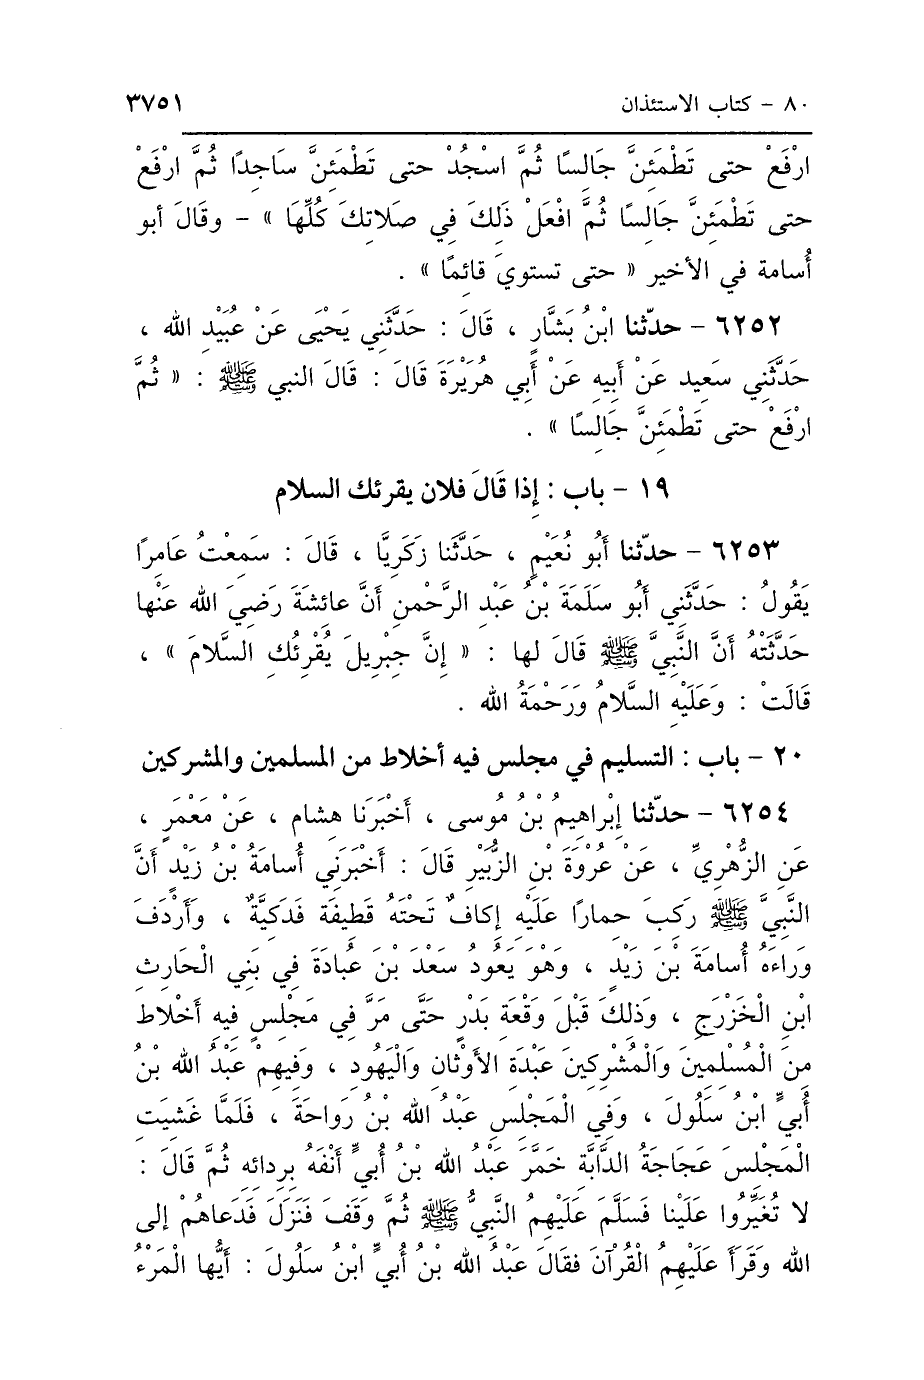 ٨٠ - كتاب الاستئذان ٣٧٥١
ارْفَعْ حتى تَطْمَئِنَّ جَالِسًا ثُمَّ اسْجُدْ حتى تَطْمَئِنَّ سَاجِدًا ثُمَّ ارْفَعْ
حتى تَطْمَئِنَّ جَالِسًا ثُمَّ افْعَلْ ذَلِكَ فِي صَلَاتِكَ كُلِّهَا » - وقَالَ أبو
أُسامة في الأخير « حتى تستويَ قائمًا » .
٦٢٥٢ - حدّثنا ابْنُ بَشَّارٍ ، قَالَ : حَدَّثَنِي يَحْيَى عَنْ عُبَيْدِ الله ،
حَدَّثَنِي سَعِيد عَنْ أَبِيهِ عَنْ أَبِي هُرَيْرَةَ قَالَ : قَالَ النبي ﷺ : « ثُمَّ
ارْفَعْ حتى تَطْمَئِنَّ جَالِسًا » .
١٩ - باب : إذا قَالَ فلان يقرئك السلام
٦٢٥٣ - حدّثنا أَبُو نُعَيْمٍ ، حَدَّثَنَا زَكَرِيَّا ، قَالَ : سَمِعْتُ عَامِرًا
يَقُولُ : حَدَّثَنِي أَبُو سَلَمَةَ بْنُ عَبْدِ الرَّحْمنِ أَنَّ عائِشَةَ رَضِيَ الله عَنْها
حَدَّثَتْهُ أَنَّ النَّبِيَّ ﷺ قَالَ لها : « إِنَّ جِبْرِيلَ يُقْرِئُكِ السَّلَامَ » ،
قَالَتْ : وَعَلَيْهِ السَّلَامُ وَرَحْمَةُ الله .
٢٠ - باب : التسليم في مجلس فيه أخلاط من المسلمين والمشركين
٦٢٥٤ - حدّثنا إِبْراهِيمُ بْنُ مُوسى ، أَخْبَرَنا هشام ، عَنْ مَعْمَرٍ ،
عَنِ الزُّهْرِيِّ ، عَنْ عُرْوَةَ بْنِ الزُّبَيْرِ قَالَ : أَخْبَرَنِي أُسامَةُ بْنُ زَيْدٍ أَنَّ
النَّبِيَّ ﷺ رَكِبَ حِمارًا عَلَيْهِ إِكافٌ تَحْتَهُ قَطِيفَة فَدَكِيَّةٌ ، وَأَرْدَفَ
وَراءَهُ أُسامَةَ بْنَ زَيْدٍ ، وَهْوَ يَعُودُ سَعْدَ بْنَ عُبادَةَ فِي بَنِي الْحَارِثِ
ابْنِ الْخَزْرَجِ ، وَذلِكَ قَبْلَ وَقْعَةِ بَدْرٍ حَتَّى مَرَّ فِي مَجْلِسٍ فِيهِ أَخْلاط
مِنَ الْمُسْلِمِينَ وَالْمُشْرِكِينَ عَبَدَةِ الأَوْثانِ وَالْيَهُودِ ، وَفِيهِمْ عَبْدُ الله بْنُ
أُبيٍّ ابْنُ سَلُولَ ، وَفِي الْمَجْلِسِ عَبْدُ الله بْنُ رَواحَةَ ، فَلَمَّا غَشِيَتِ
الْمَجْلِسَ عَجَاجَةُ الدَّابَّةِ خَمَّرَ عَبْدُ الله بْنُ أُبيٍّ أَنْفَهُ بِرِدائِهِ ثُمَّ قَالَ :
لا تُغَبِّرُوا عَلَيْنا فَسَلَّمَ عَلَيْهِمُ النَّبِيُّ ﷺ ثُمَّ وَقَفَ فَنَزَلَ فَدَعاهُمْ إلى
الله وَقَرَأَ عَلَيْهِمُ الْقُرْآنَ فقالَ عَبْدُ الله بْنُ أُبيٍّ ابْنُ سَلُولَ : أَيُّها الْمَرْءُ